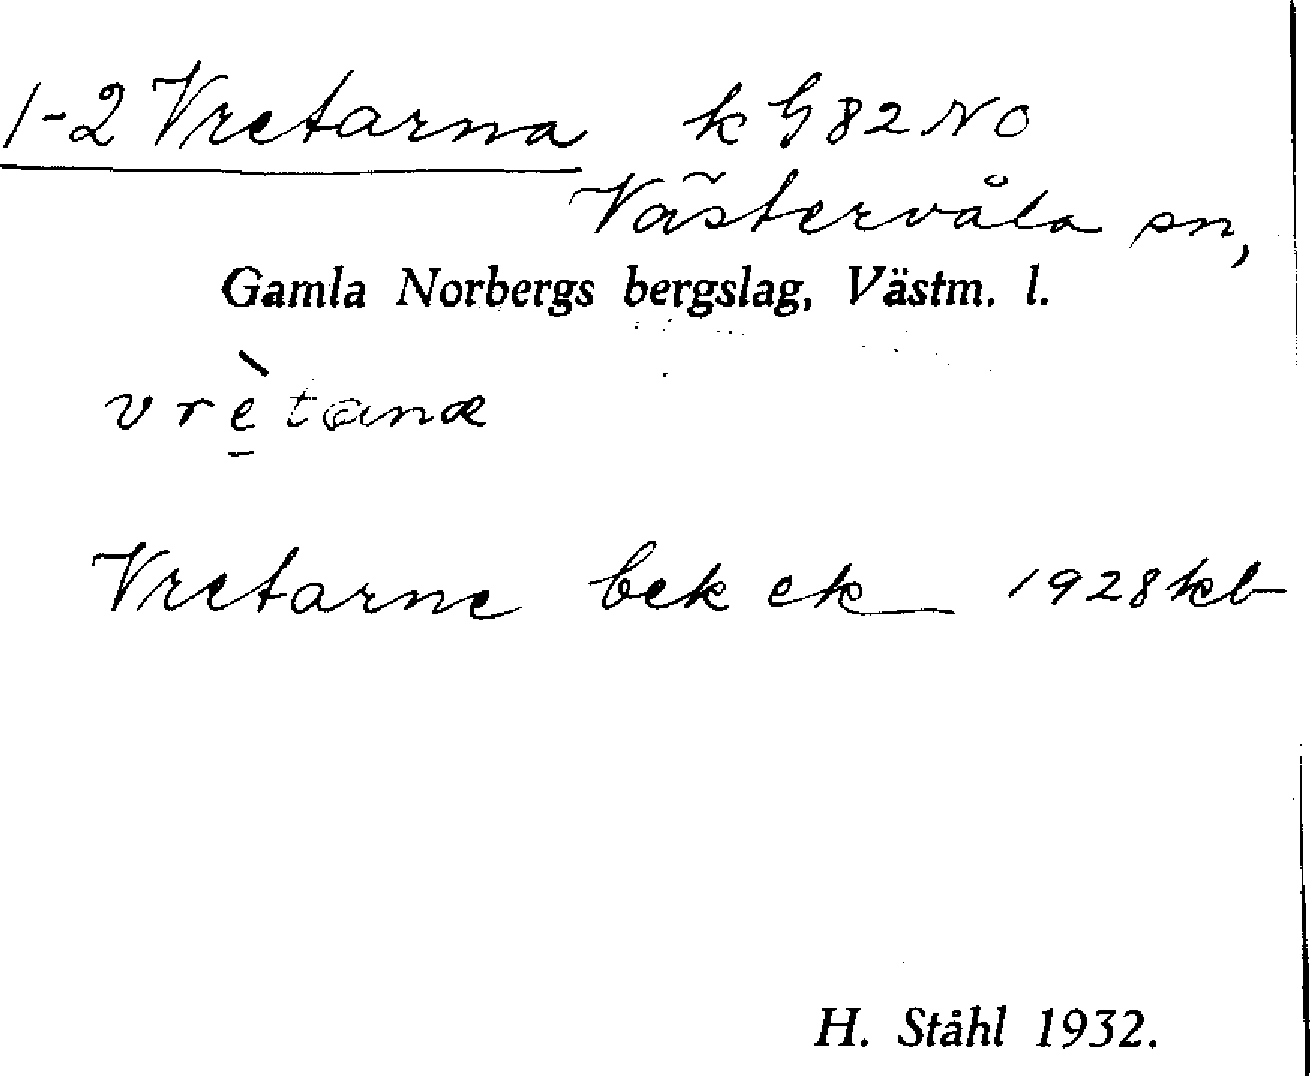 1-2 Vretarna k G 82 NO
Västervåla sn,
Gamla Norbergs bergslag, Västm. l.
vrè̱tanæ
Vretarne bek ek 1928 kb
H. Ståhl 1932.